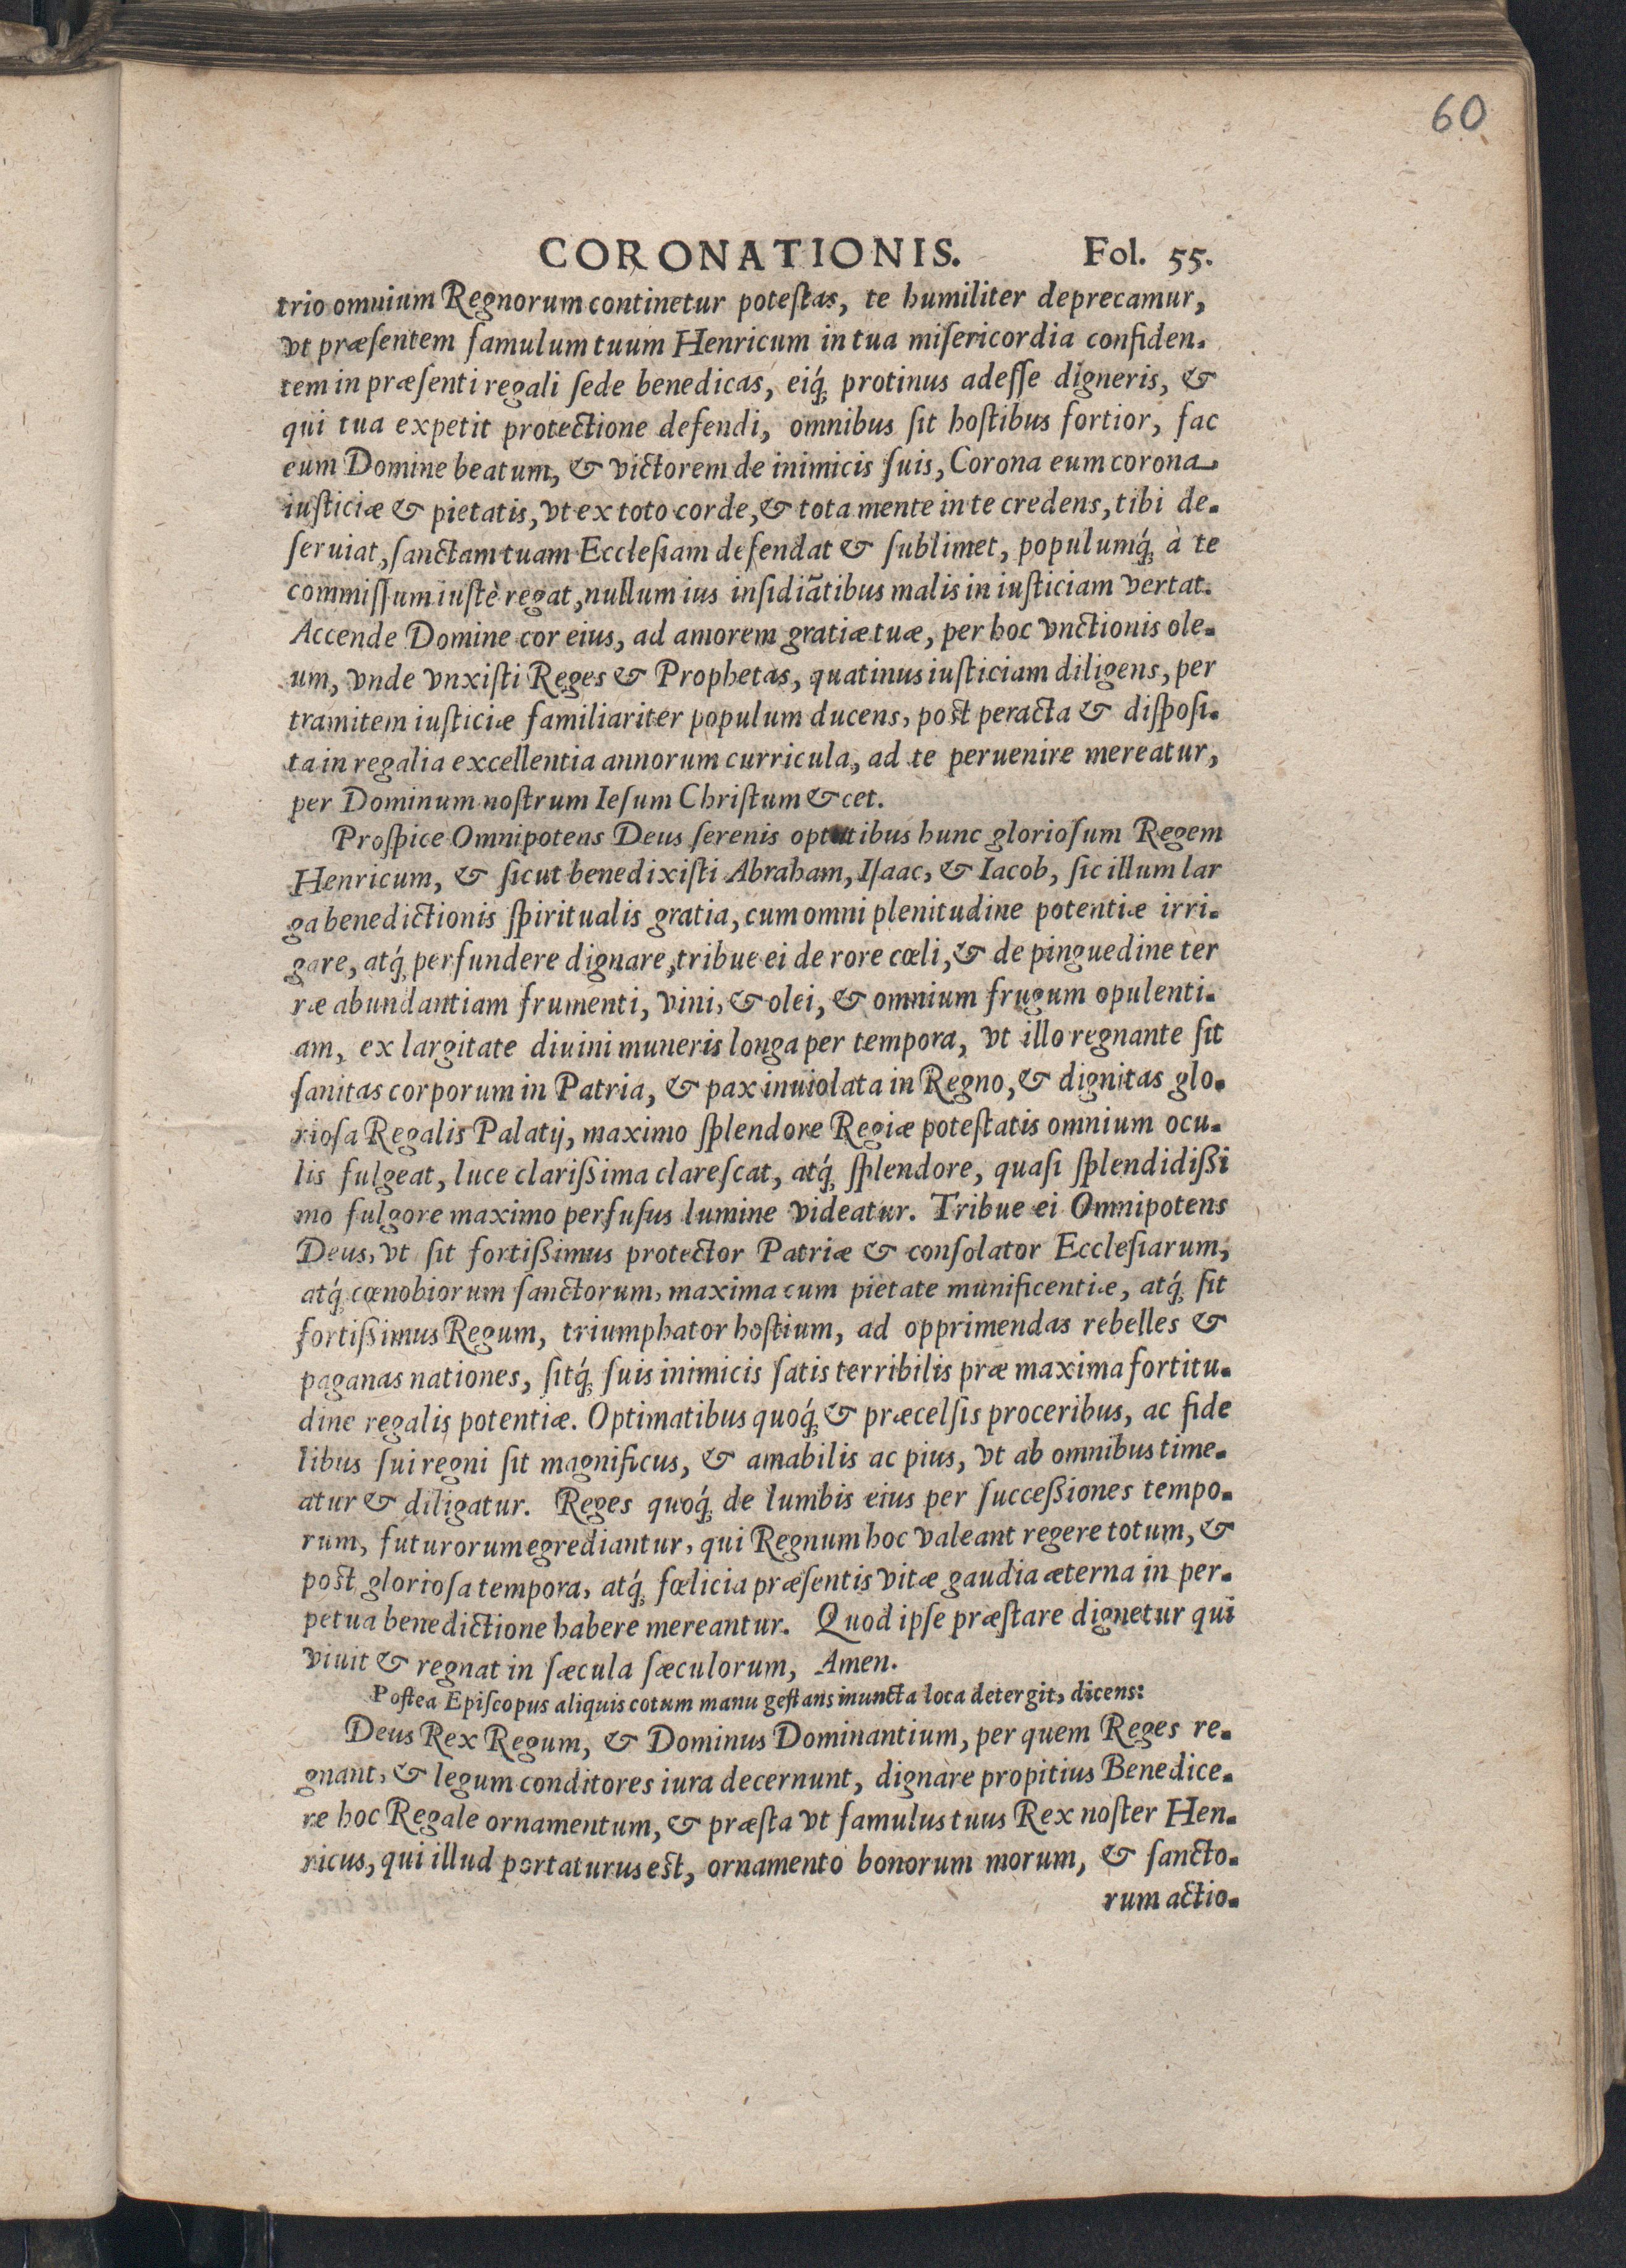 60
CORONATIONIS. Fol. 55.
trio omnium Regnorum continetur poteſtas, te humiliter deprecamur,
vt præſentem famulum tuum Henricum in tua miſericordia confiden-
tem in præſenti regali ſede benedicas, eiq́; protinus adeſſe digneris, &
qui tua expetit protectione defendi, omnibus ſit hoſtibus fortior, fac
eum Domine beatum, & victorem de inimicis ſuis, Corona eum corona
iuſticiæ & pietatis, vt ex toto corde, & tota mente in te credens, tibi de-
ſeruiat, ſanctam tuam Eccleſiam defendat & ſublimet, populumq́; à te
commiſſum iuſtè regat, nullum ius inſidiãtibus malis in iuſticiam vertat.
Accende Domine cor eius, ad amorem gratiæ tuæ, per hoc vnctionis ole-
um, vnde vnxiſti Reges & Prophetas, quatinus iuſticiam diligens, per
tramitem iuſticiæ familiariter populum ducens, poſt peracta & diſpoſi-
ta in regalia excellentia annorum curricula, ad te peruenire mereatur,
per Dominum noſtrum Ieſum Chriſtum & cet.
Proſpice Omnipotens Deus ſerenis optutibus hunc glorioſum Regem
Henricum, & ſicut benedixiſti Abraham, Iſaac, & Iacob, ſic illum lar
ga benedictionis ſpiritualis gratia, cum omni plenitudine potentiæ irri-
gare, atq́; perfundere dignare, tribue ei de rore cœli, & de pinguedine ter
ræ abundantiam frumenti, vini, & olei, & omnium frugum opulenti-
am, ex largitate diuini muneris longa per tempora, vt illo regnante ſit
ſanitas corporum in Patria, & pax inuiolata in Regno, & dignitas glo-
rioſa Regalis Palatij, maximo ſplendore Regiæ poteſtatis omnium ocu-
lis fulgeat, luce clariſsima clareſcat, atq́; ſplendore, quaſi ſplendidiſsi
mo fulgore maximo perfuſus lumine videatur. Tribue ei Omnipotens
Deus, vt ſit fortiſsimus protector Patriæ & conſolator Eccleſiarum,
atq́; cœnobiorum ſanctorum, maxima cum pietate munificentiæ, atq́; ſit
fortiſsimus Regum, triumphator hoſtium, ad opprimendas rebelles &
paganas nationes, ſitq́; ſuis inimicis ſatis terribilis præ maxima fortitu-
dine regalis potentiæ. Optimatibus quoq́; & præcelſis proceribus, ac fide
libus ſui regni ſit magnificus, & amabilis ac pius, vt ab omnibus time-
atur & diligatur. Reges quoq́; de lumbis eius per ſucceſsiones tempo-
rum, futurorum egrediantur, qui Regnum hoc valeant regere totum, &
poſt glorioſa tempora, atq́; fœlicia præſentis vitæ gaudia æterna in per-
petua benedictione habere mereantur. Quod ipſe præſtare dignetur qui
viuit & regnat in ſæcula ſæculorum, Amen.
Poſtea Epiſcopus aliquis cotum manu geſtans inuncta loca detergit, dicens:
Deus Rex Regum, & Dominus Dominantium, per quem Reges re-
gnant, & legum conditores iura decernunt, dignare propitius Benedice-
re hoc Regale ornamentum, & præſta vt famulus tuus Rex noſter Hen-
ricus, qui illud portaturus eſt, ornamento bonorum morum, & ſancto-
rum actio-